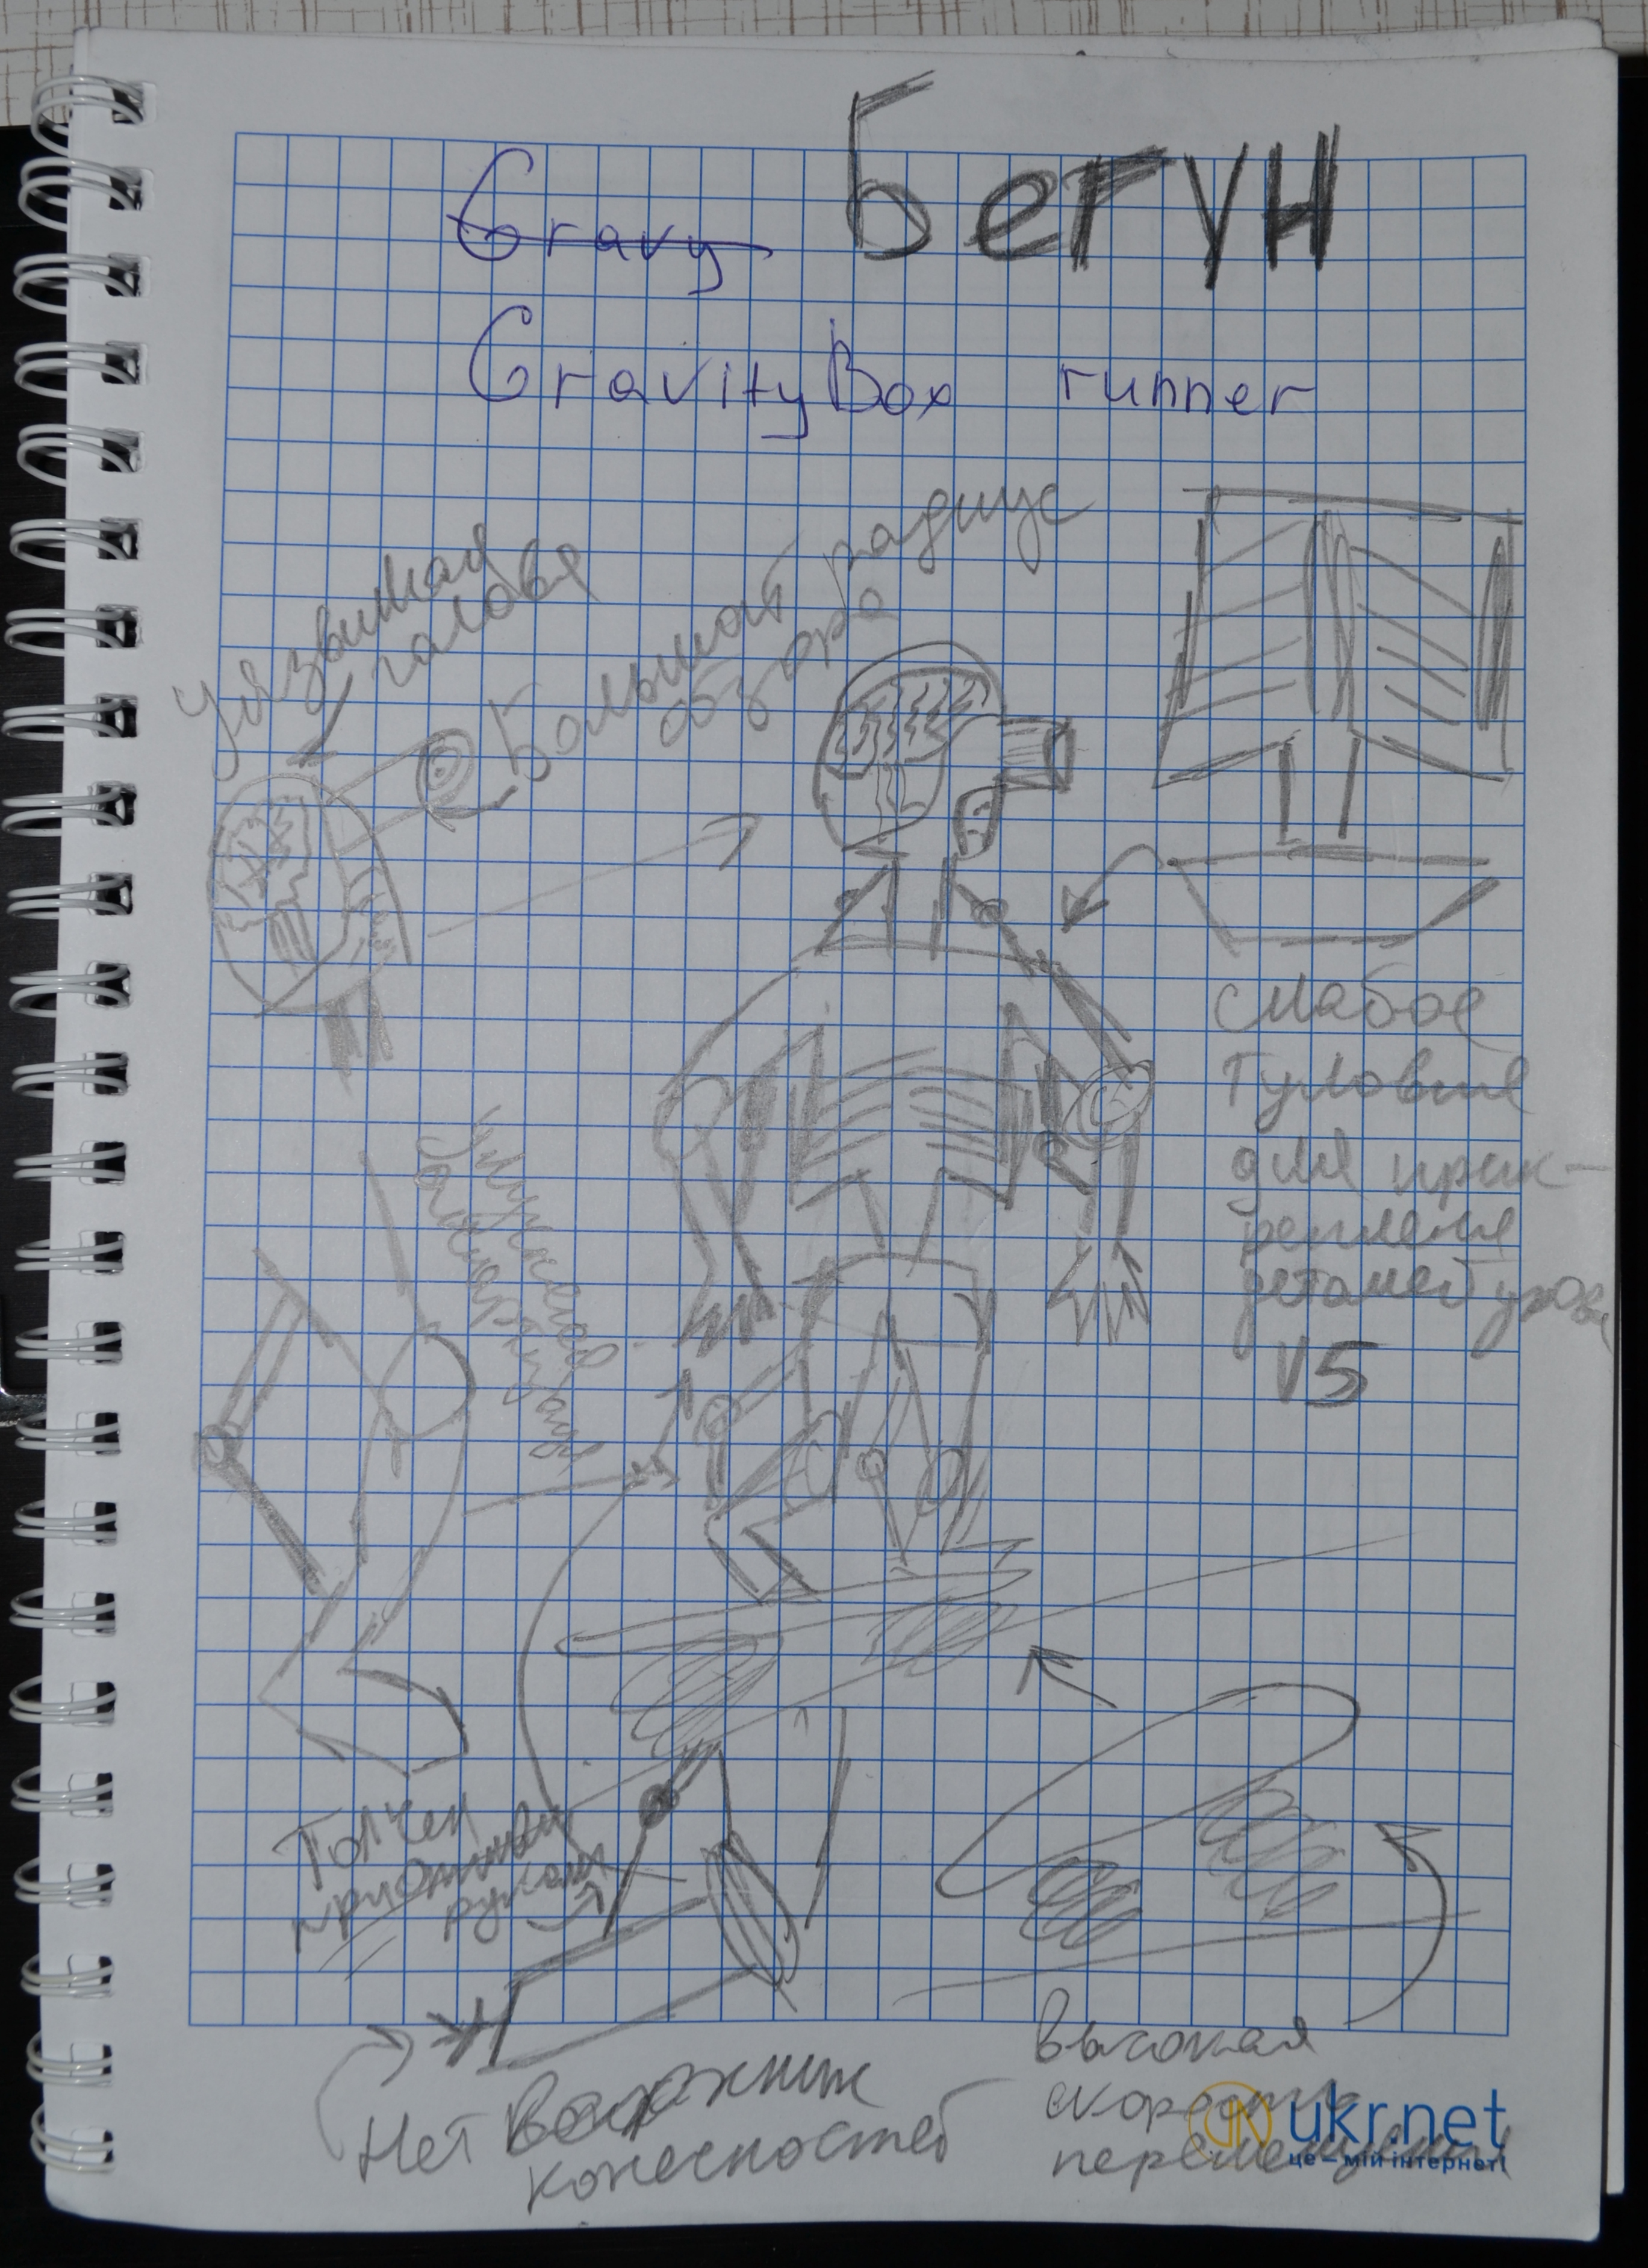 Бегун
Gravy
GravityBox runner
Уязвимая
голова
Большой радиус
обзора
слабое
туловие
для прик-
репления
деталей
V5
Толчек
руками
Нет важных
конечностей
высокая
скорость
перемещения
ukr.net
це – мій інтернет!